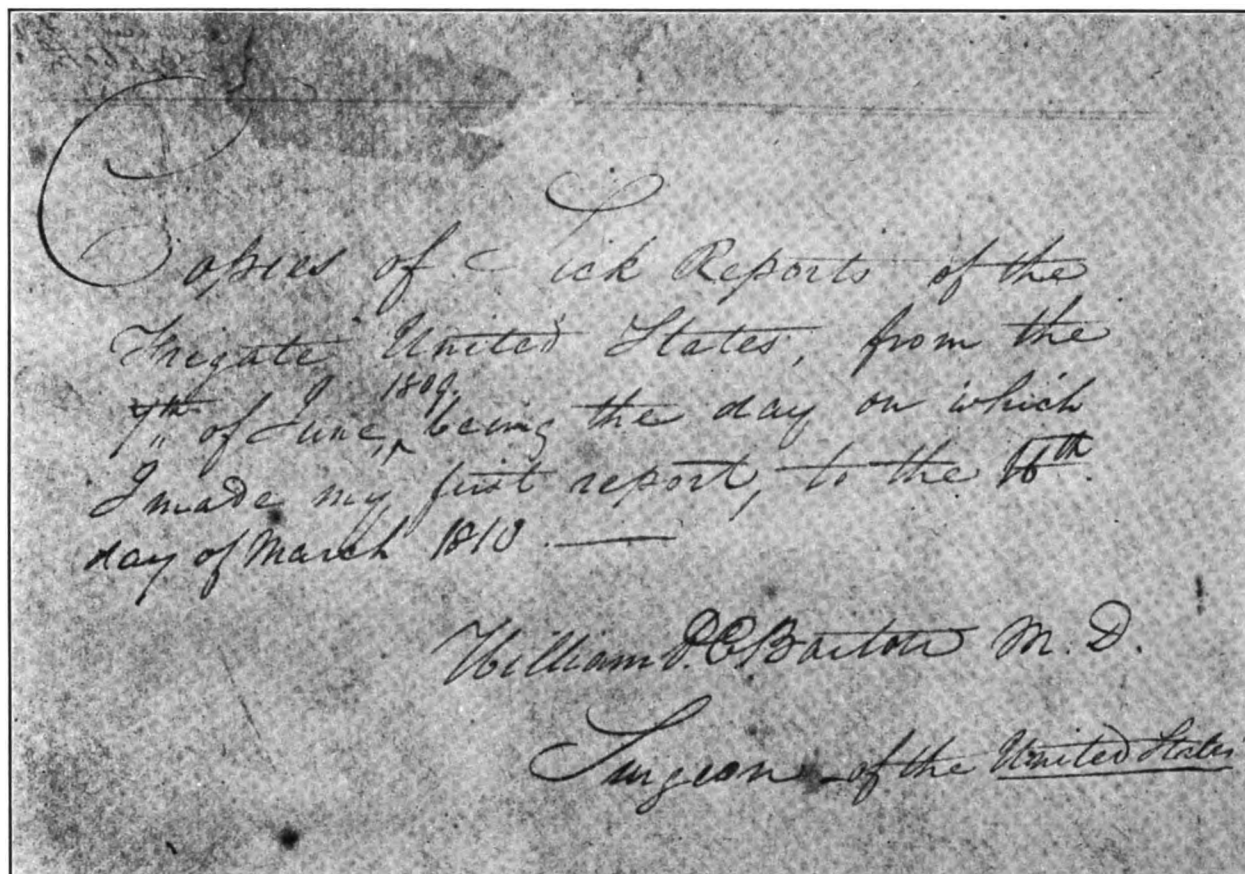 Copies of Sick Reports of the
Frigate United States, from the
7th of June, 1809, being the day on which
I made my first report, to the 16th
day of March 1810
William P. C. Barton M. D.
Surgeon of the United States